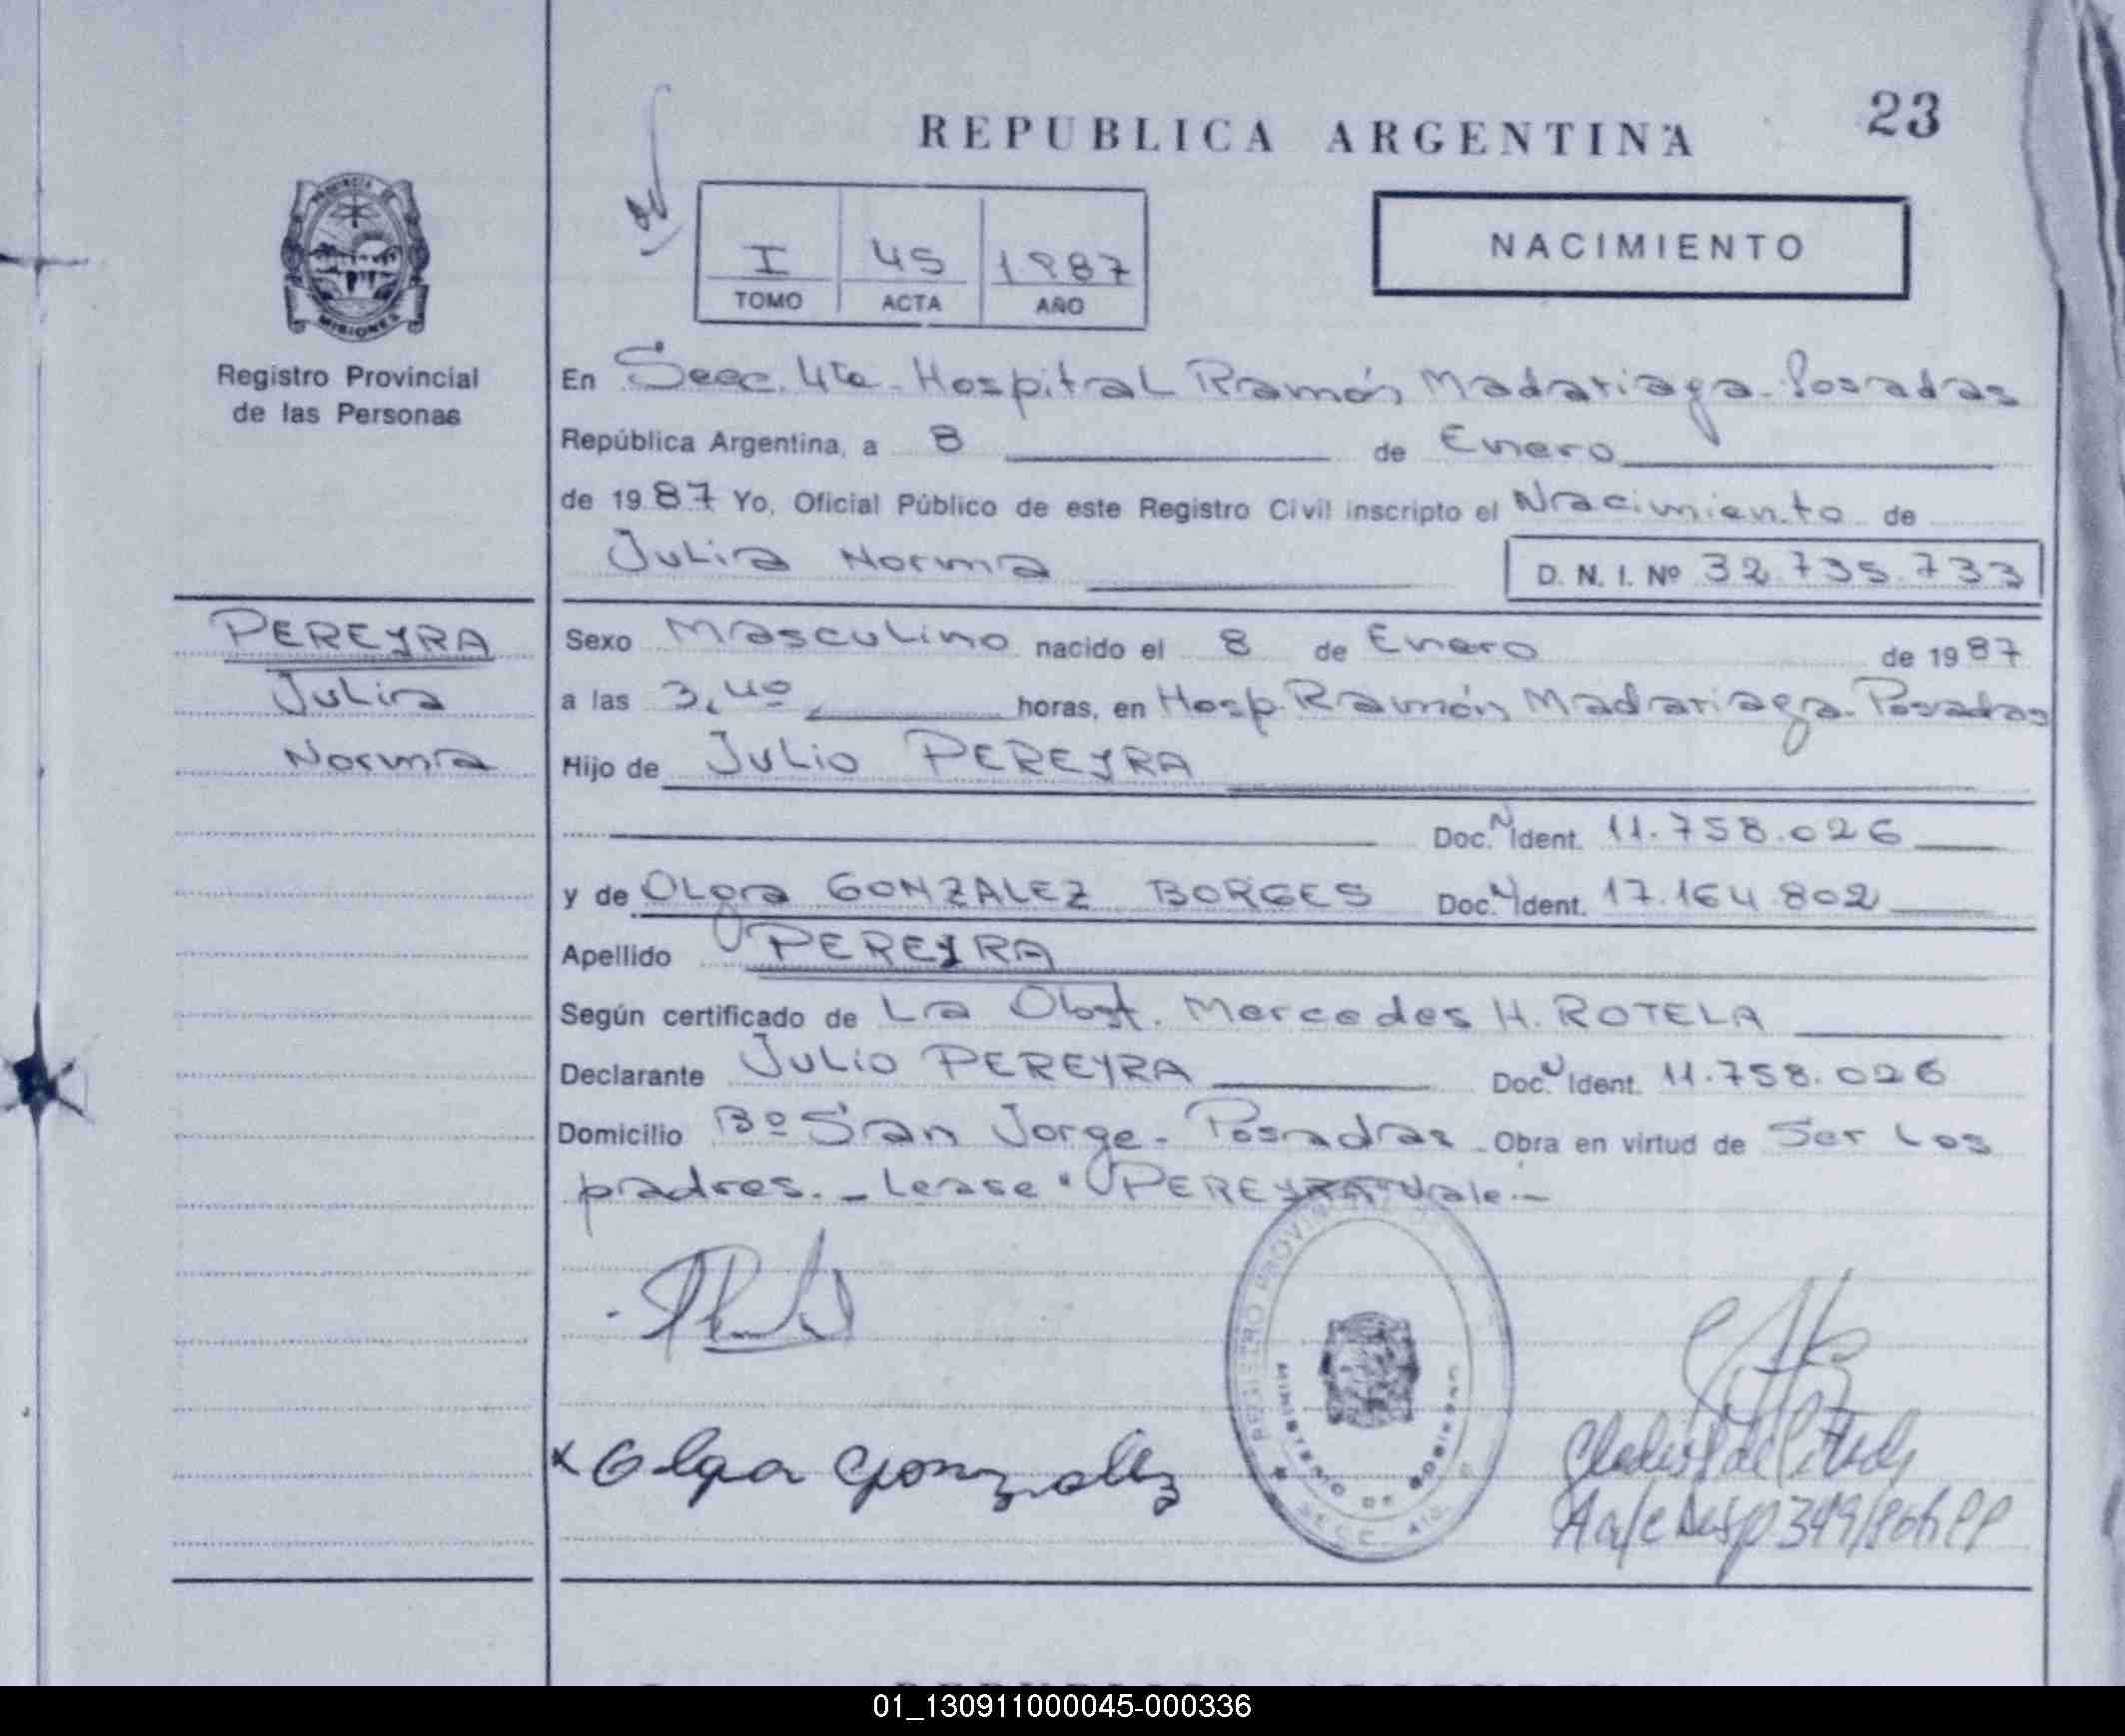 REPUBLICA ARGENTINA
23
NACIMIENTO
I 45 1987
TOMO ACTA AÑO
PROVINCIA DE
MISIONES
Registro Provincial
de las Personas
En Secc. 4ta. Hospital Ramón Madariaga - Posadas
República Argentina, a 8 de Enero
de 1987 Yo, Oficial Público de este Registro Civil inscripto el Nacimiento de
Julia Norma
D. N. I. Nº 32.735.733
PEREYRA
Julia
Norma
Sexo Masculino nacido el 8 de Enero de 1987
a las 3,40 horas, en Hosp. Ramón Madariaga - Posadas
Hijo de Julio PEREYRA
Doc. N Ident. 11.758.026
y de Olga GONZALEZ BORGES Doc. N Ident. 17.164.802
Apellido PEREYRA
Según certificado de La Obst. Mercedes H. ROTELA
Declarante Julio PEREYRA Doc. N Ident. 11.758.026
Domicilio Bº San Jorge - Posadas Obra en virtud de Ser los
padres. - Lease "PEREYRA" Vale. -
REGISTRO PROVINCIAL
MINISTERIO DE GOBIERNO
SECC. 4ta.
x Olga Gonzalez
01_130911000045-000336